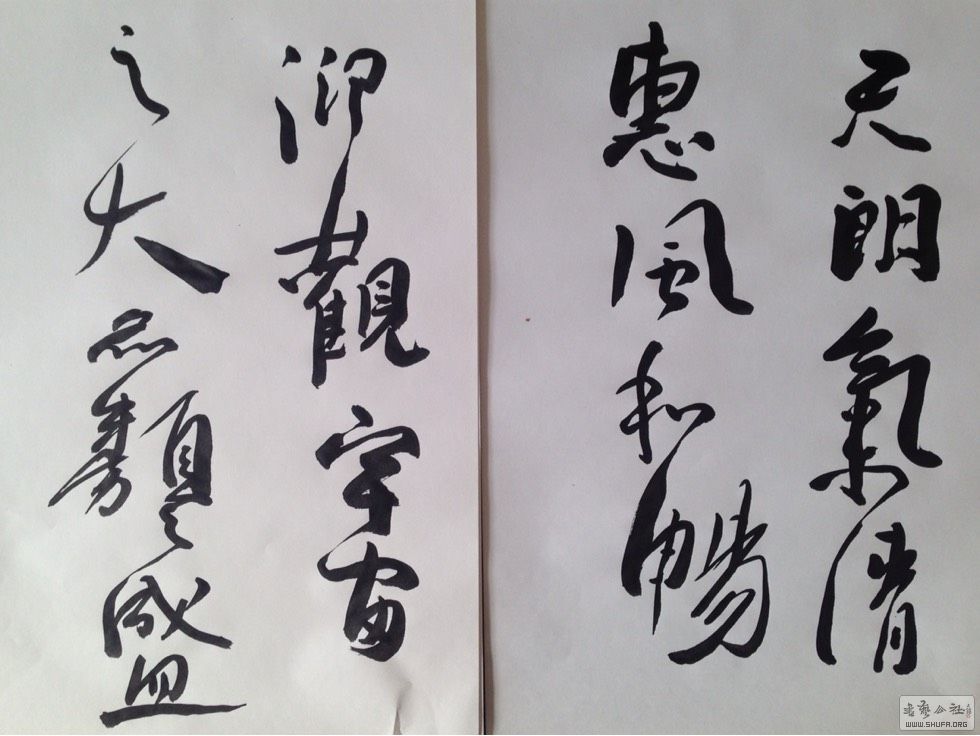 天朗氣清
惠風和暢
仰觀宇宙
之大品類之盛
WWW.SHUFA.ORG